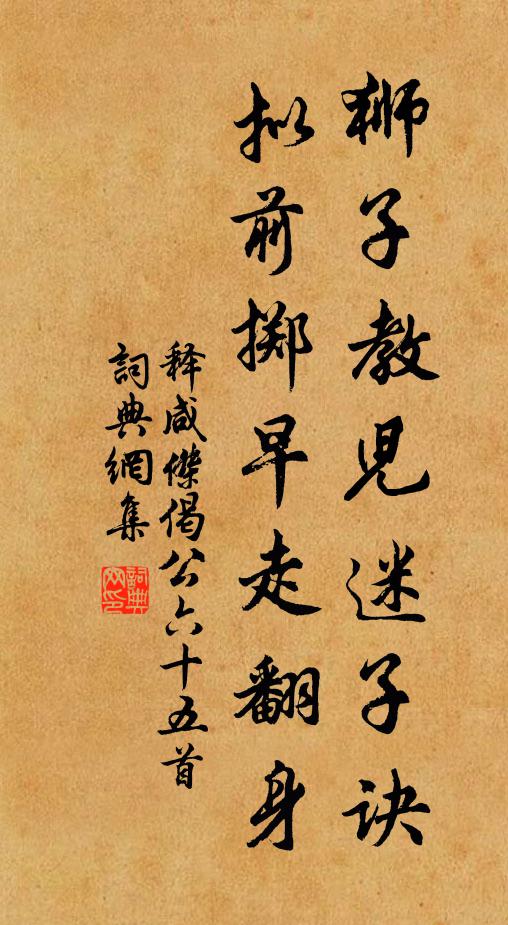 狮子教児迷子诀
拟前掷早走翻身
释咸傑偈公六十五首
詞典網集
詞典网印